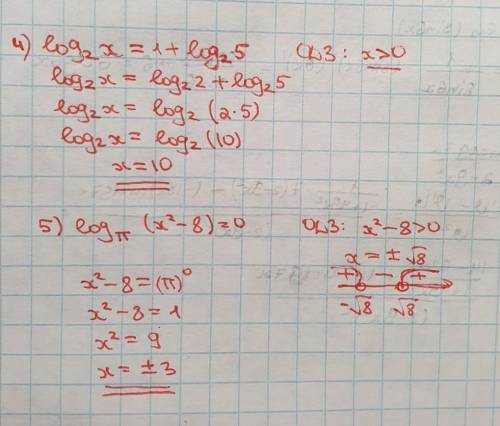 4) log₂x = 1 + log₂5 ОДЗ: x>0
log₂x = log₂2 + log₂5
log₂x = log₂(2·5)
log₂x = log₂(10)
x = 10
5) log_π(x²-8) = 0 ОДЗ: x²-8>0
x = ±√8
+ - +
-√8 √8
x²-8 = (π)⁰
x²-8 = 1
x² = 9
x = ±3